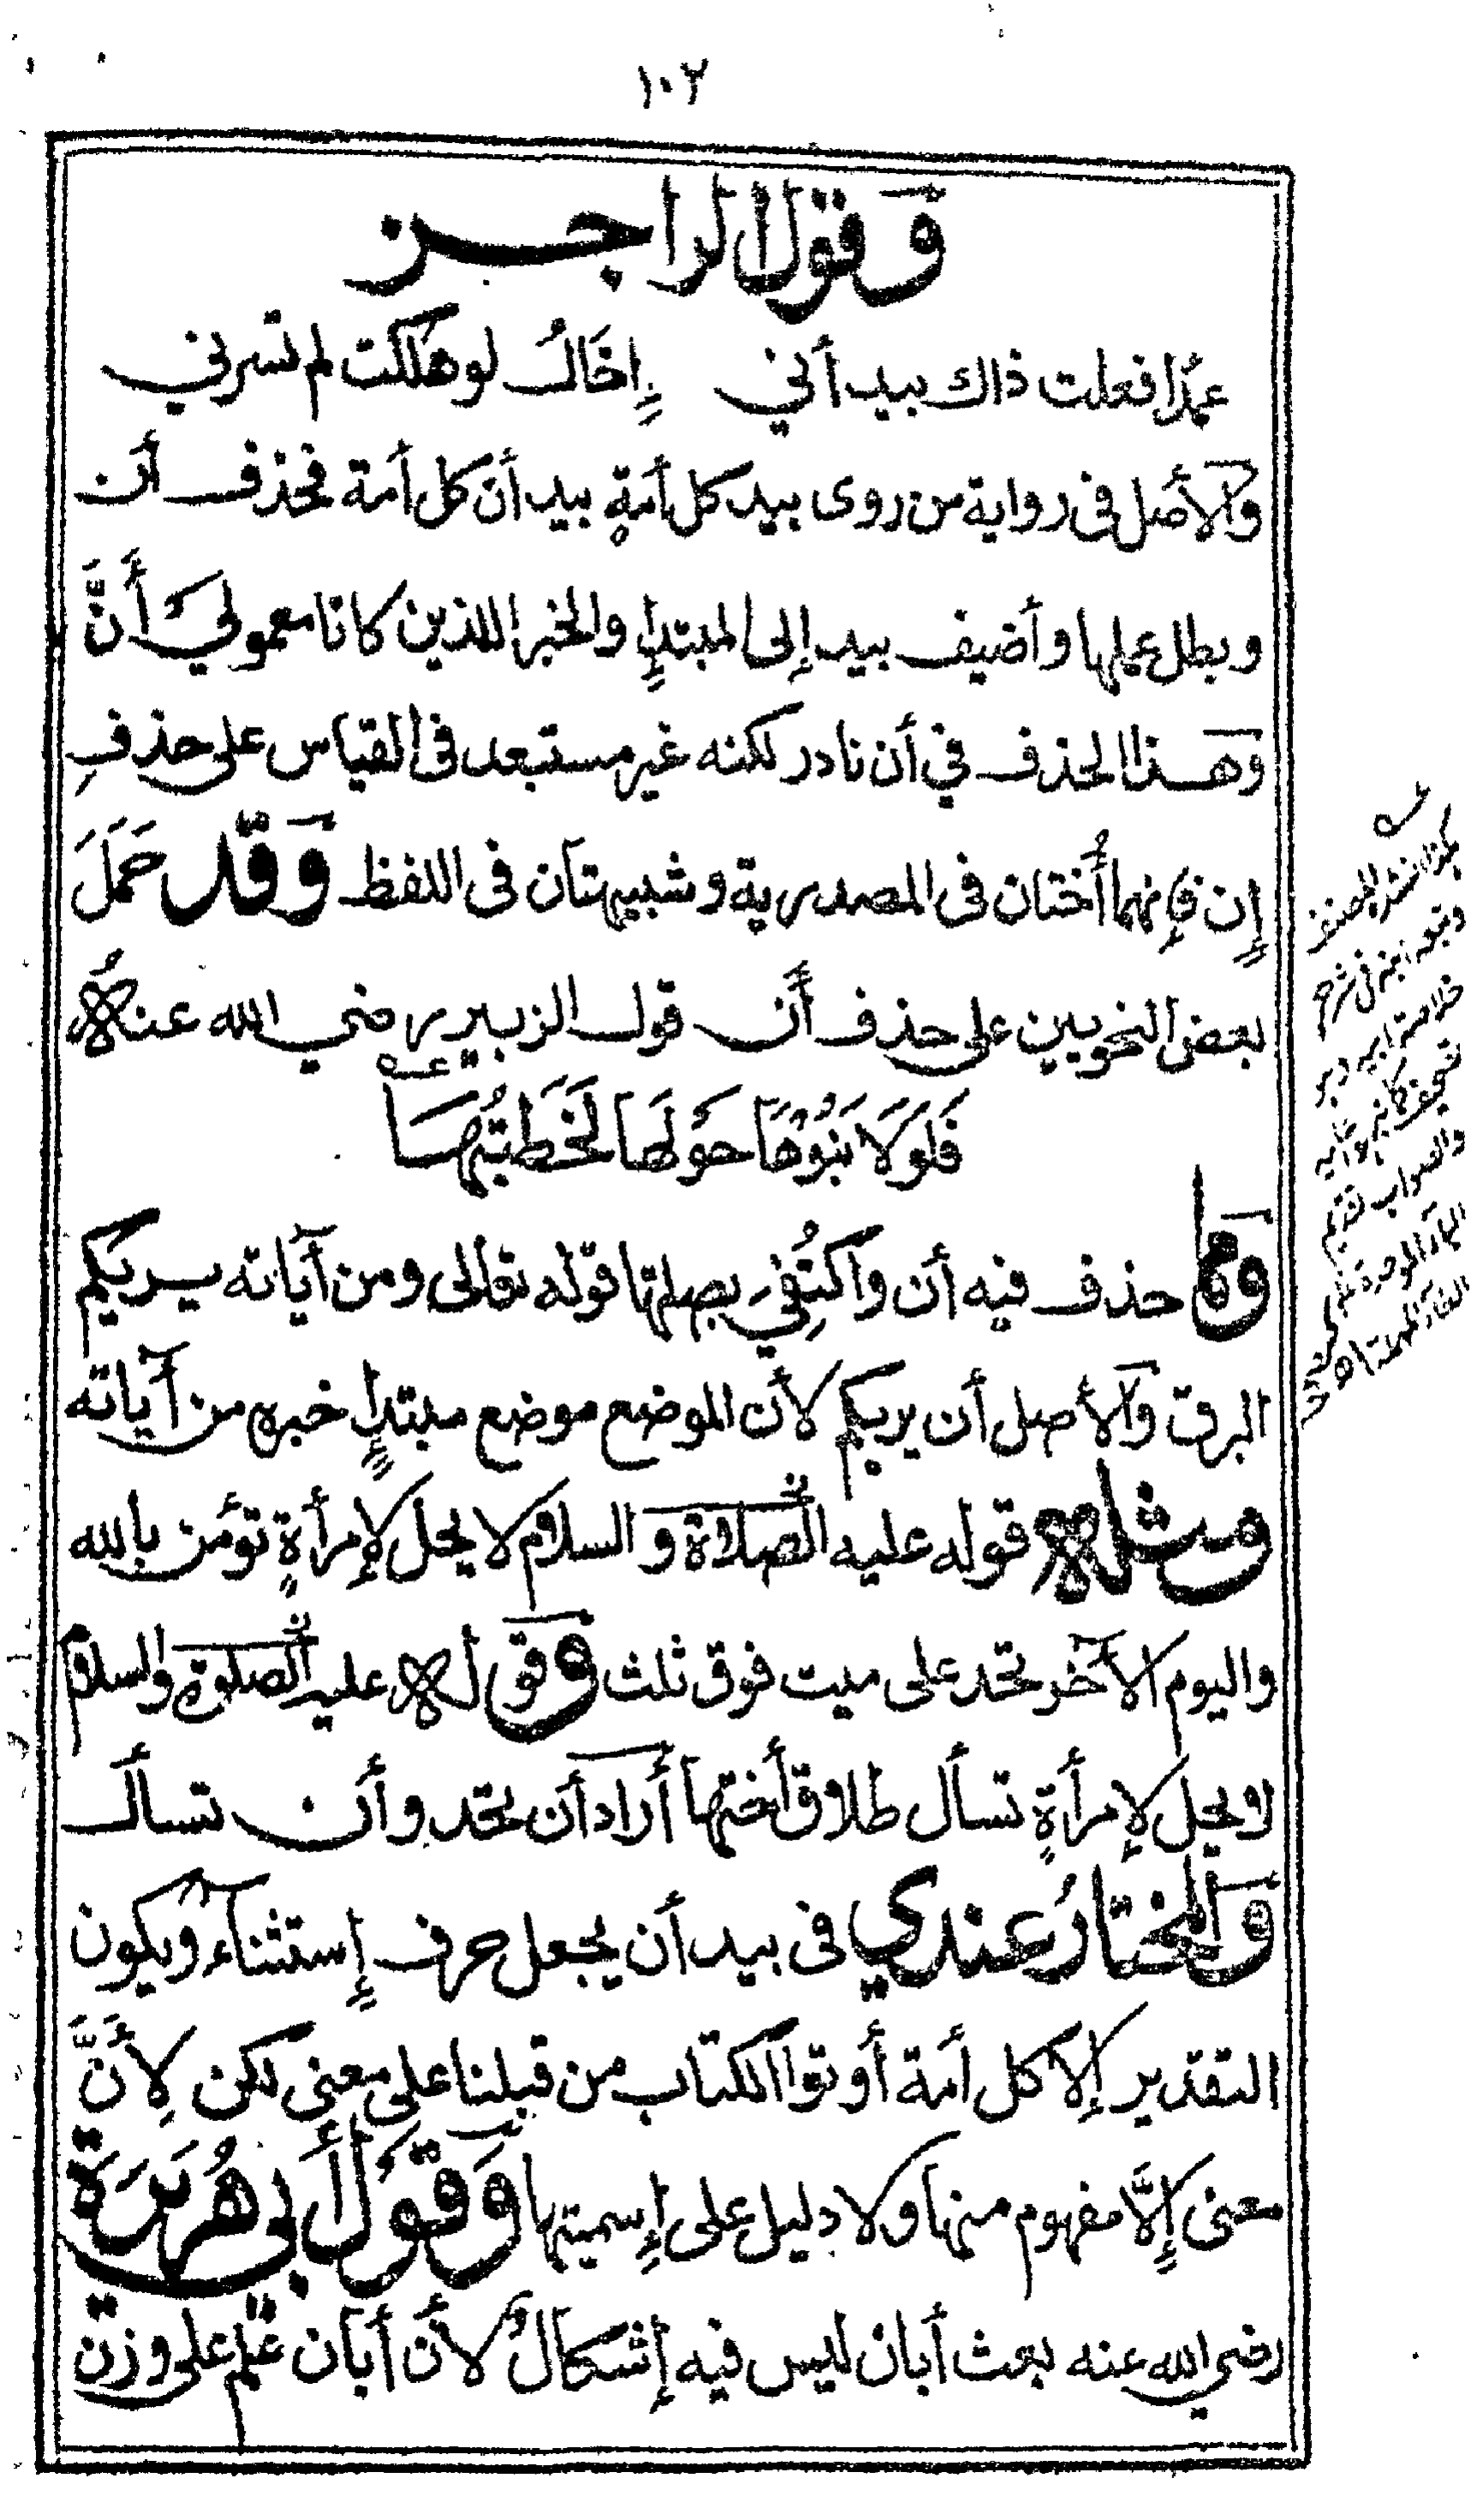 ١٠٢
وَقول الراجز
عمدًا فعلت ذاك بيد أني إِخَالُ لو هلكت لم تسرني
والأصل في رواية من روى بيد كل أمةٍ بيد أنّ كل أمة فحذف أن
وبطل عملها وأضيف بيد إلى المبتدإٍ والخبر اللذين كانا معموليَ أَنَّ
وهذا الحذف في أن نادر لكنه غير مستبعد في القياس على حذفِ
إِن فإنهما أُختان في المصدرية وشبيهتان في اللفظ وَقد حَمَلَ
بعض النحويين على حذف أَن قول الزبير رضي الله عنهُ
فَلَوْلَا بَنُوْهَا حَوْلَهَا لَخَطَبْتُهَا
ومما حذف فيه أن واكتُفِي بصلتها قوله تعالى ومن آياته يريكم
البرق والأصل أن يريكم لأن الموضع موضع مبتدإٍ خبره من آياته
ومثله قوله عليه الصلاة والسلام لا يحل لإمرأةٍ تؤمن بالله
واليوم الآخر تحد على ميت فوق ثلث وقوله عليه الصلوة والسلام
لا يحل لإمرأةٍ تسأل طلاق أختها أراد أن تحد وأن تسأل
وَالمختارُ عندي في بيد أن يجعل حرف إستثناء ويكون
التقدير إلا كل أمة أوتوا الكتاب من قبلنا على معنى لكن لِأَنَّ
معنى إلَّا مفهوم منها ولا دليل على إسميتها وَقَوْلُ أَبِي هُرَيْرَة
رضي الله عنه بعث أبان ليس فيه إشكالٌ لأن أبان علم على وزن